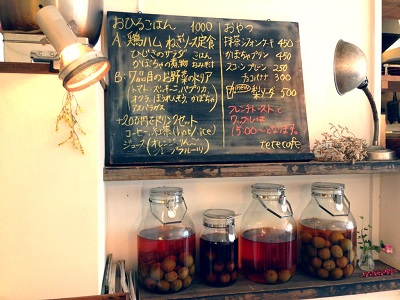 おひるごはん 1000
A. 鶏ハム ねぎソース定食
ひじきのサラダ ごはん
かぼちゃの煮物 おみそ汁
B. 7品目のお野菜のドリア
トマト・ズッキーニ・パプリカ
オクラ・ほうれんそう・かぼちゃ
アスパラガス
+200円でドリンクセット
コーヒー・紅茶(hot/ice)
ジュース(オレンジ・りんご
グレープフルーツ)
おやつ
抹茶シフォンケーキ 450
かぼちゃプリン 450
スコーン プレーン 250
300
new 500
フレンチトーストと
ワッフルは
15:00~となります。
terecafe